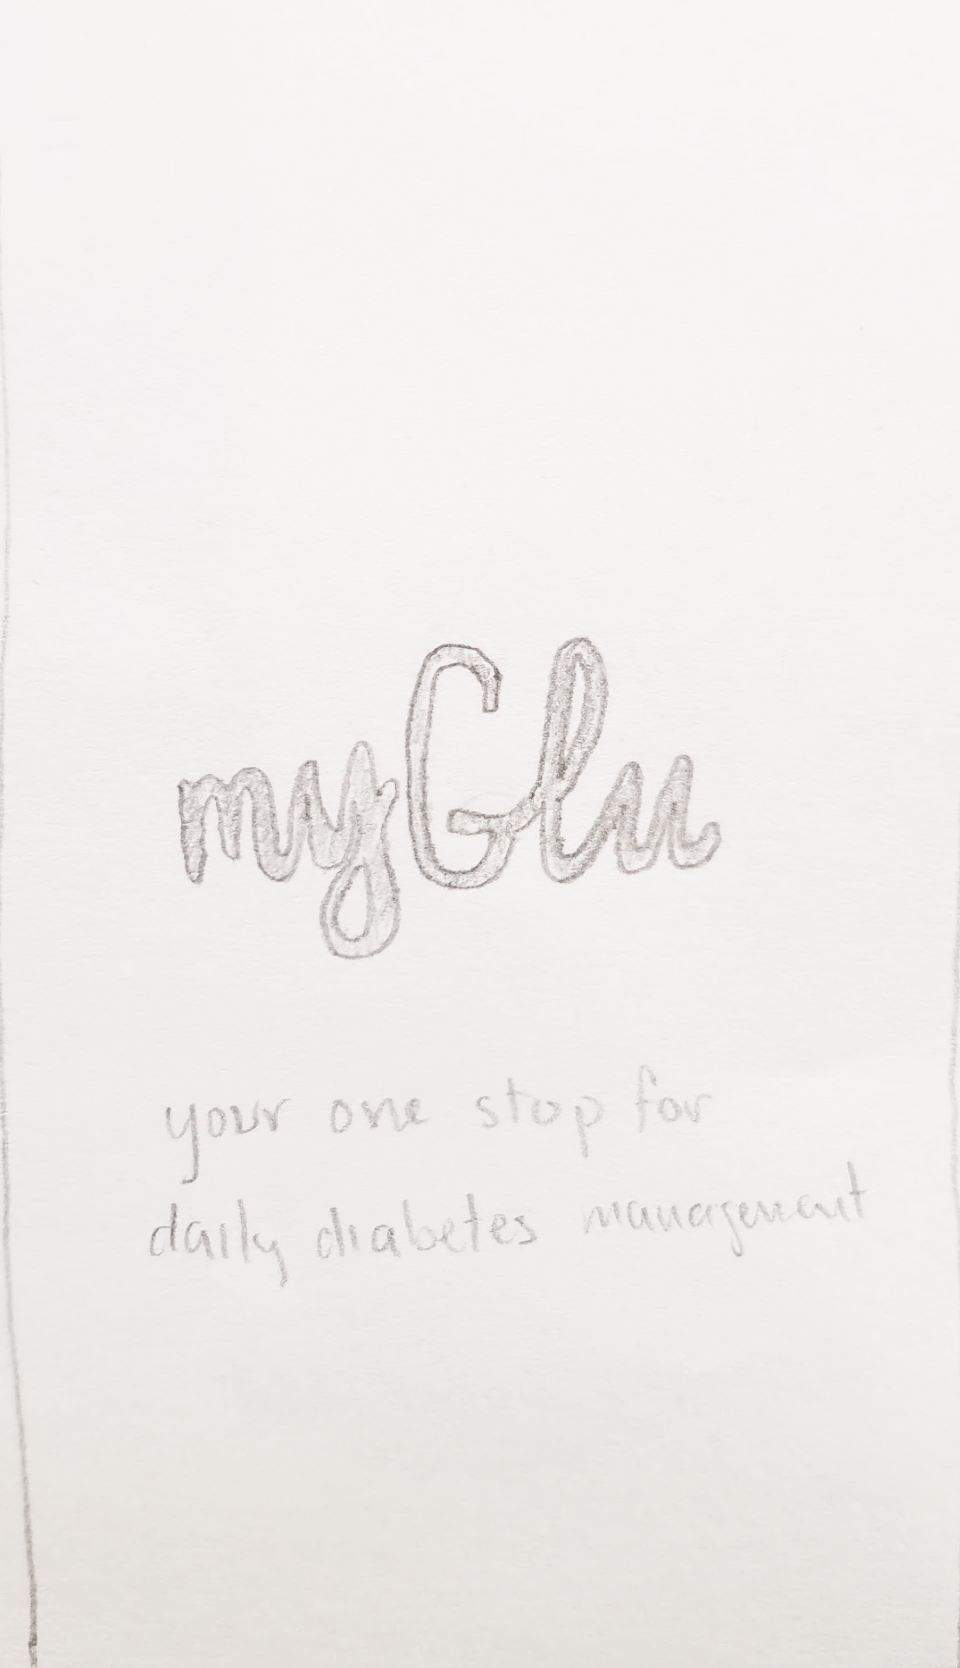 myGlu
your one stop for
daily diabetes management